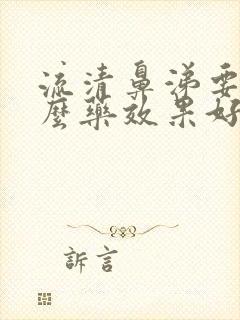 流清鼻涕要
麼藥效果好
訴言